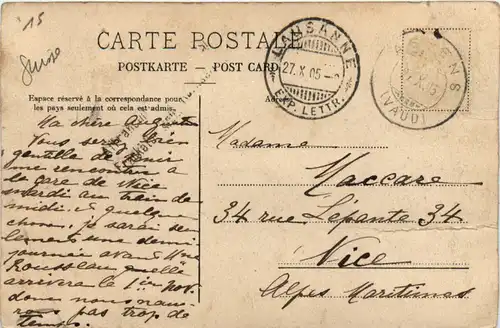 15
Suisse
CARTE POSTALE
POSTKARTE — POST CARD
Espace réservé à la correspondance pour
les pays seulement où cela est admis.
LAUSANNE
27.X.05
EXP. LETTR.
ENS
(VAUD)
Ma chère
Vous serez bien
gentille de venir
me rencontrer à
la gare de Nice
mardi au train de
midi et quelque
chose, je serai seu
lement une demi
journée avant Mme
Rousseau quelle
arrivera le 1ier Nov.
donc nous n'au-
rons pas trop de
temps.
Madame
Maccare
34 rue Lépante 34
Nice
Alpes Maritimes